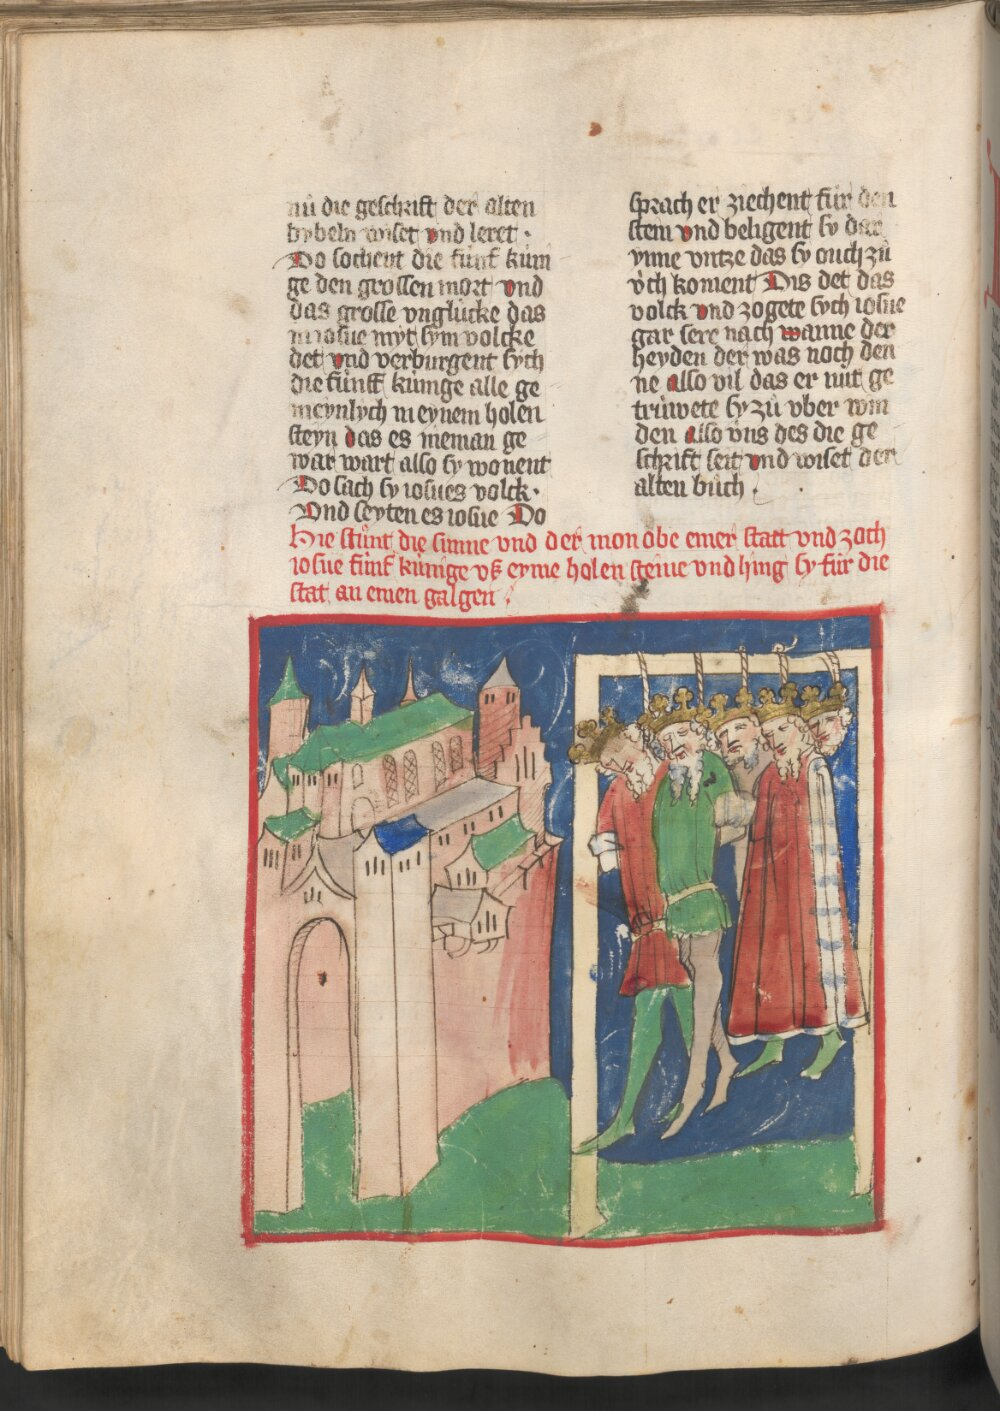 nů die geschrift der alten
bybeln wiset vnd leret ·
Do sochent die fünf küni
ge den grossen mort vnd
das grosse vnglücke das
in iosue myt sym volcke
det vnd verburgent sych
die fünff künige alle ge
meynlych in eynem holen
steyn das es nieman ge
war wart also sy wonent
Do sach sy iosues volck ·
Vnd seyten es iosue Do
sprach er ziechent für den
stein vnd beligent sy dar
ynne vntze das sy ouch zů
v̊ch koment Dis det das
volck vnd zogete sych iosue
gar sere nach wanne der
heyden der was noch den
ne also vil das er nit ge
trůwete sy zů vber win
den also vns des die ge
schrift seit vnd wiset der
alten bůch .
Hie stůnt die sunne vnd der mon abe einer statt vnd zoch
iosue fünf künige vß eyme holen steine vnd hing sy für die
stat an einen galgen .